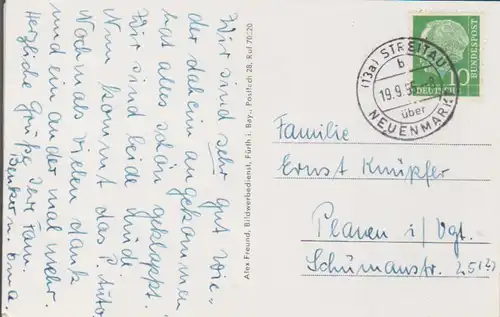 Wir sind sehr gut wie-
der daheim angekommen
hat alles schön geklappt.
Wir sind beide müde.
Nun kommt das P. Auto.
Nochmals vielen dank
und ein an der mal mehr.
Herzliche Grüße Ihr Fam.
u. oma.
Afex Freund, Bildwerbedienst, Fürth i. Bay., Postfach 28, Ruf 70120
(13a) STREITAU
b
19.9.5
über
NEUENMARK
DEUTSCHE
BUNDESPOST
Familie
Ernst Knüpfer
Plauen i/Vgt.
Schumanstr. 25